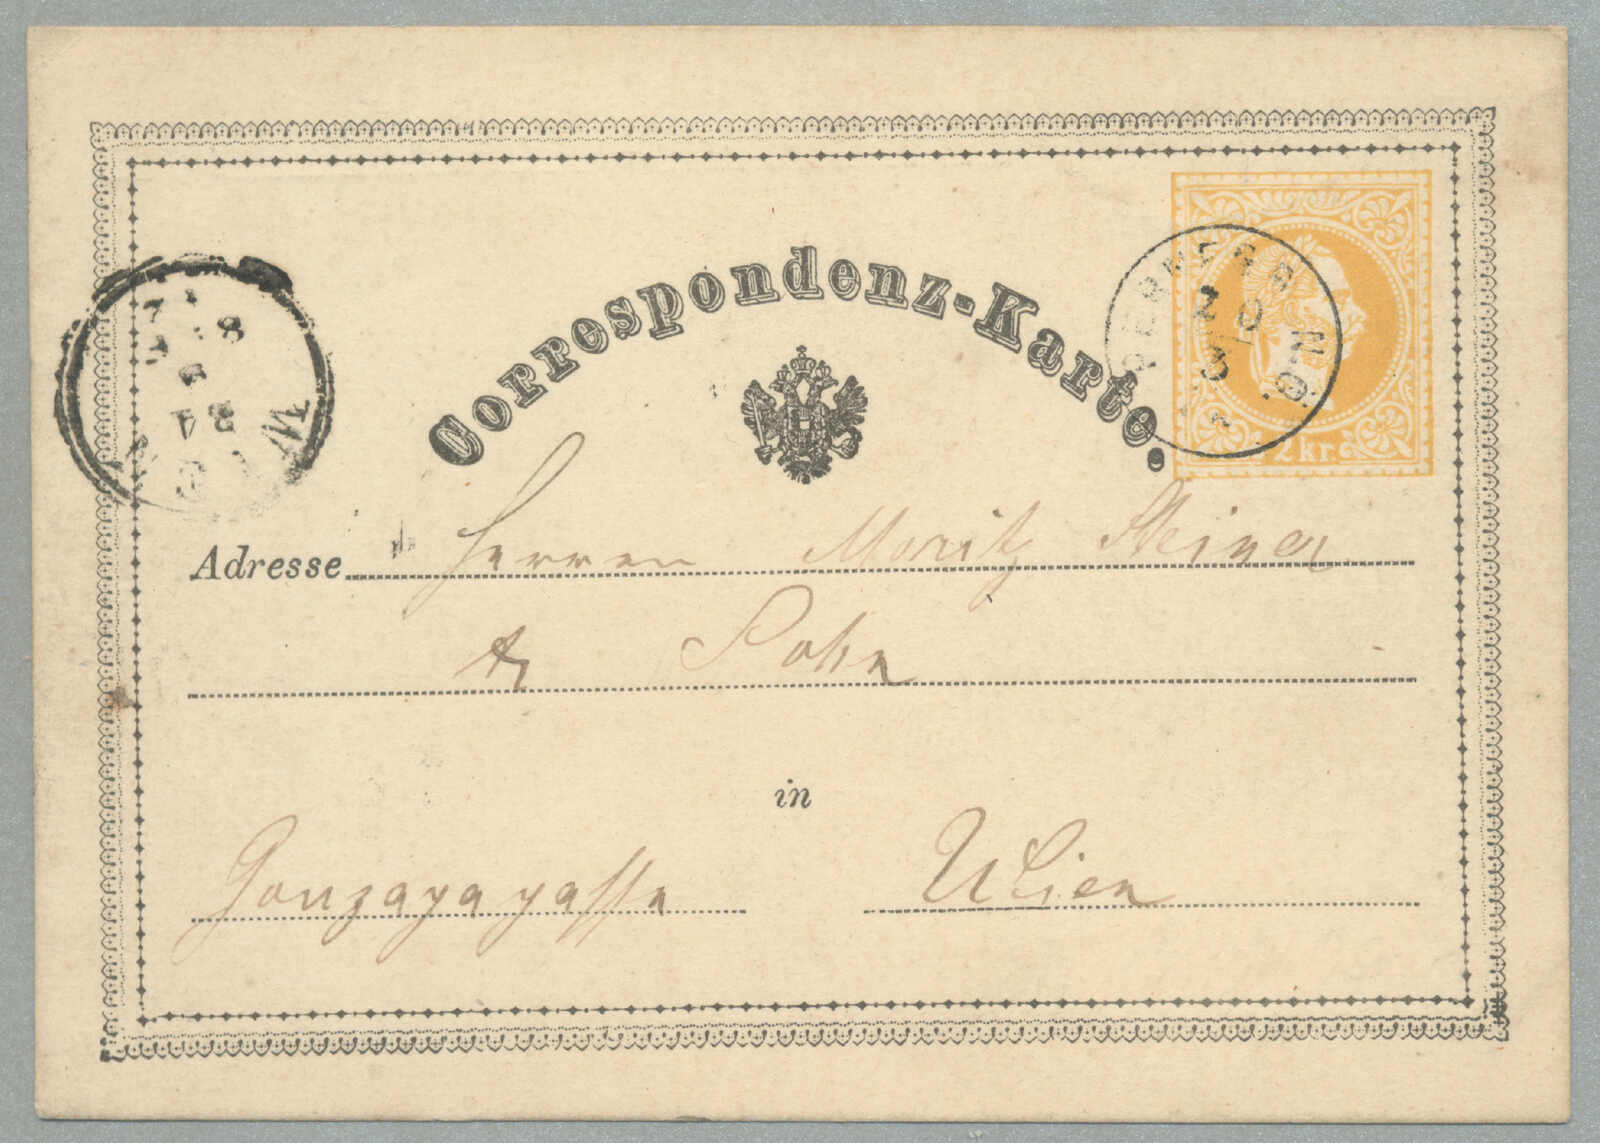 Correspondenz-Karte.
2 kr.
Adresse Herren Moritz Steiner
& Sohn
in
Gonzagagasse Wien